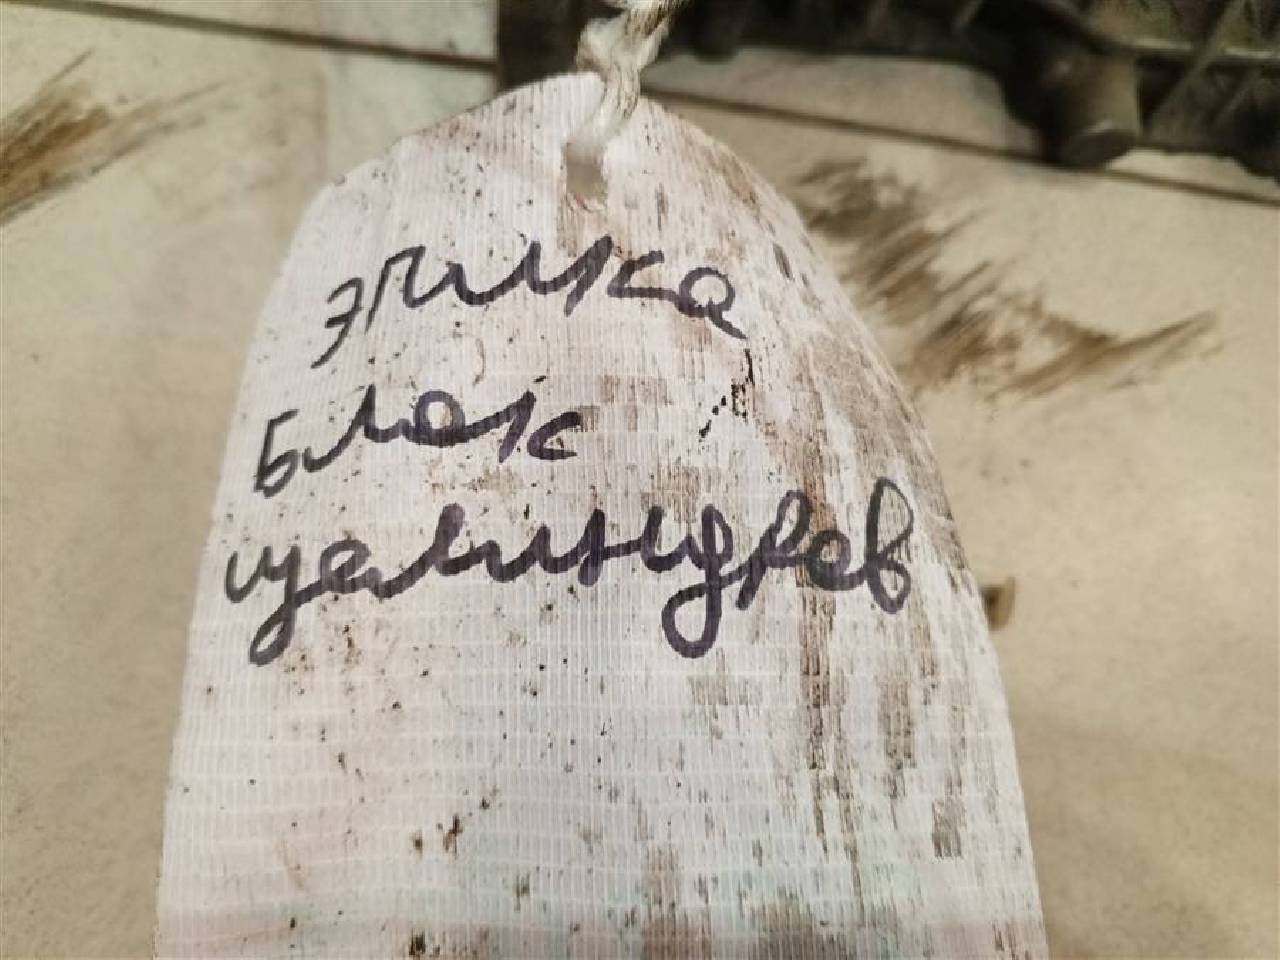 эпика
Блок
целиндров